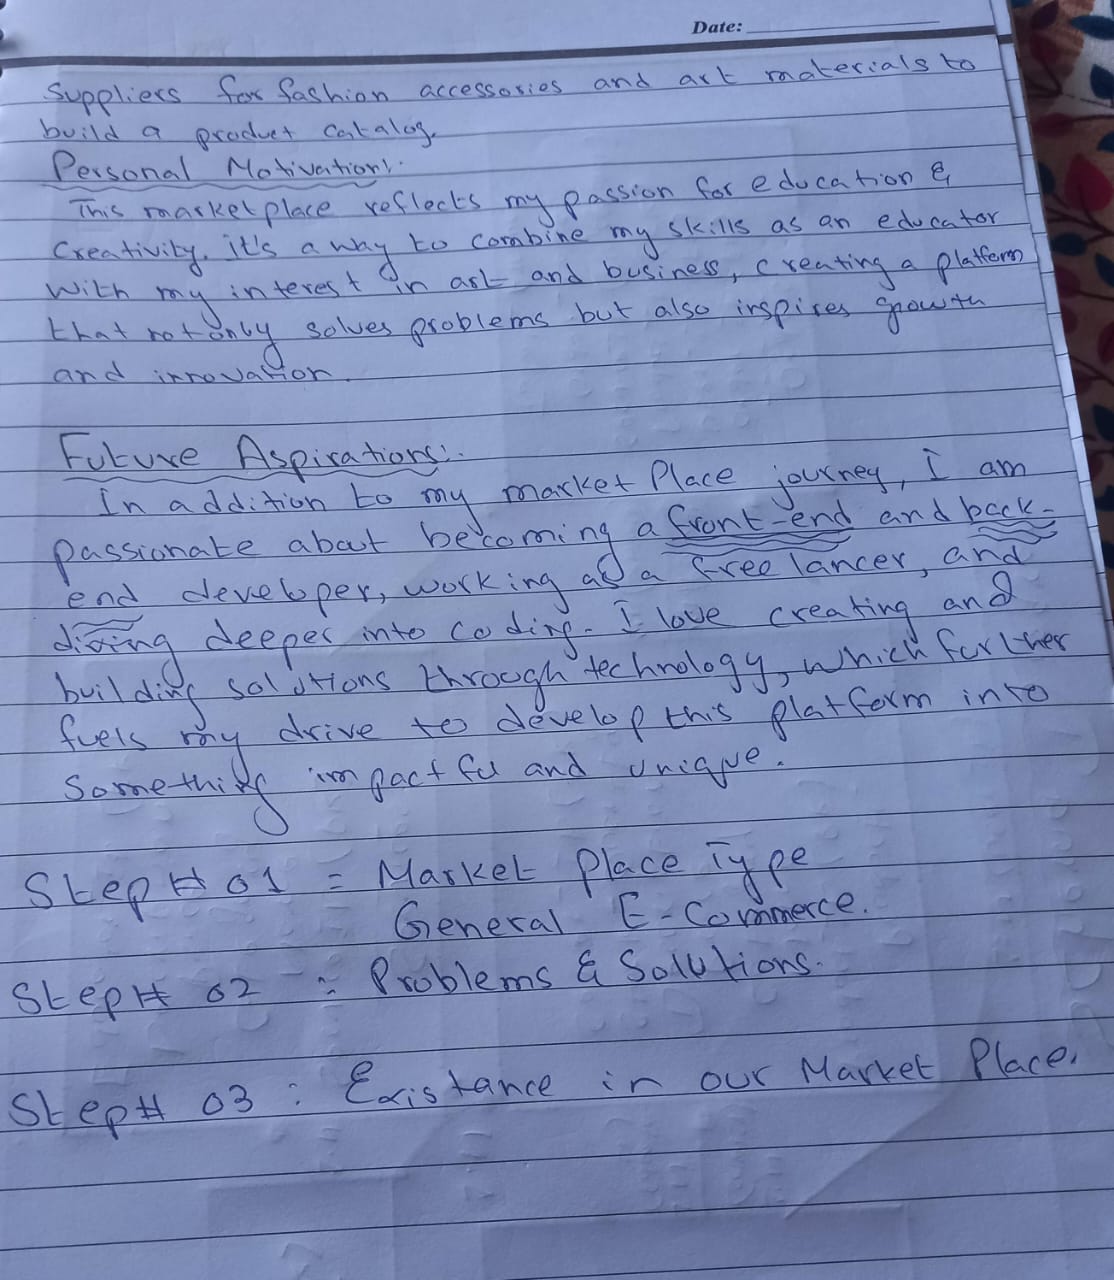 Date:
Suppliers for fashion accessories and art materials to
build a product catalog.
Personal Motivation:
This marketplace reflects my passion for education &
Creativity. it's a way to combine my skills as an educator
with my interest in art and business, creating a platform
that not only solves problems but also inspires growth
and innovation.
Future Aspirations:
In addition to my market Place journey, I am
passionate about becoming a front-end and back-
end developer, working as a free lancer, and
diving deeper into coding. I love creating and
building solutions through technology, which further
fuels my drive to develop this platform into
Something impactful and unique.
Step# 01 = Market Place Type
General E-Commerce.
Step# 02 : Problems & Solutions.
Step# 03 : Existance in our Market Place.